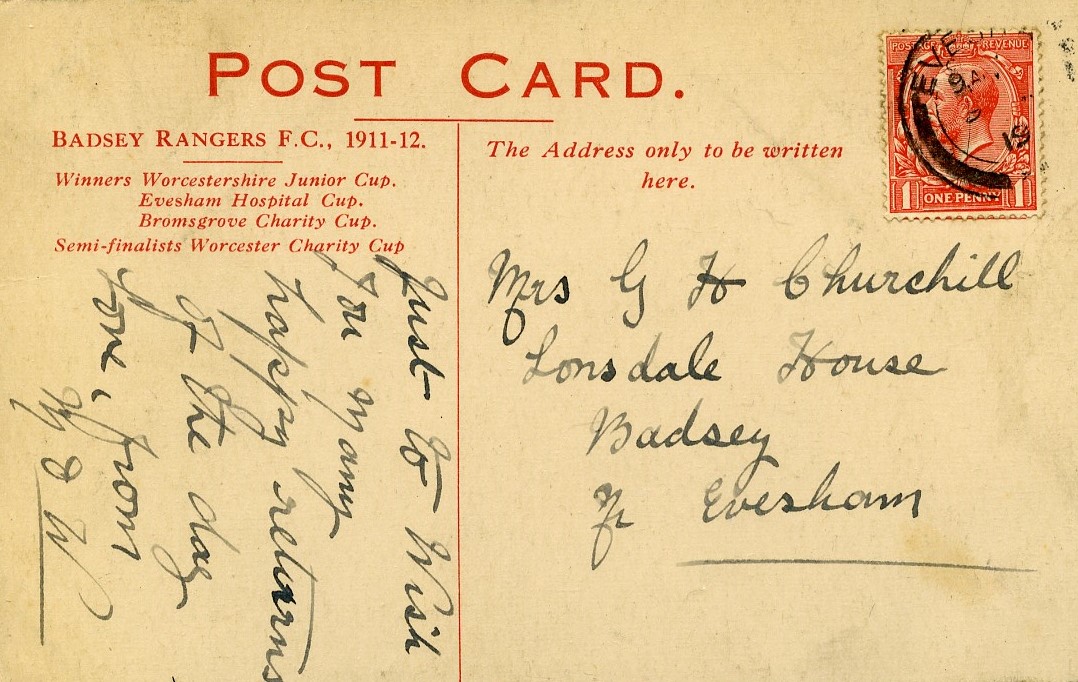 POST CARD.
BADSEY RANGERS F.C., 1911-12.
Winners Worcestershire Junior Cup.
Evesham Hospital Cup.
Bromsgrove Charity Cup.
Semi-finalists Worcester Charity Cup
Just to Wish
You Many
happy returns
of the day
Love, from
The Address only to be written
here.
Mrs G H Churchill
Lonsdale House
Badsey
Evesham
POSTAGE REVENUE
1 ONE PENNY 1